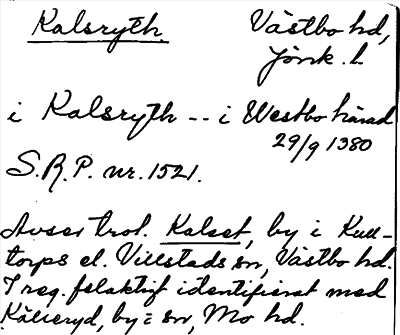 Kalsryth. Västbo hd,
Jönk. l.
i Kalsryth -- i Westbo härad
29/9 1380
S.R.P. nr. 1521.
Avser trol. Kalset, by i Kull-
torps el. Villstads sn, Västbo hd.
I reg. felaktigt identifierat med
Källeryd, by i sn, Mo hd.